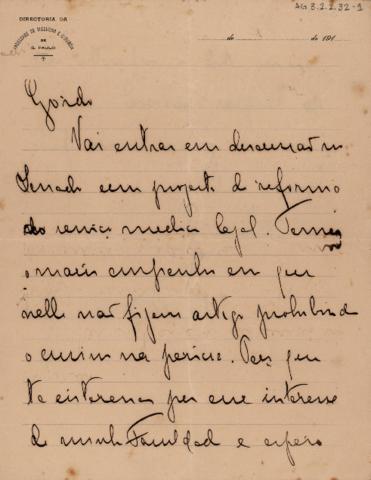 AG 3.2.2.32-1
DIRECTORIA DA
FACULDADE DE MEDICINA E CIRURGIA
DE
S. PAULO
de de 191
Gordo
Vai entrar em discussão no
Senado um projecto de reforma
do serviço medico legal. Tenho
o maior empenho em que
nelle não figure artigo prohibindo
o ensino na pericia. Peço que
te interesses por esse interesse
da minha Faculdade e espero